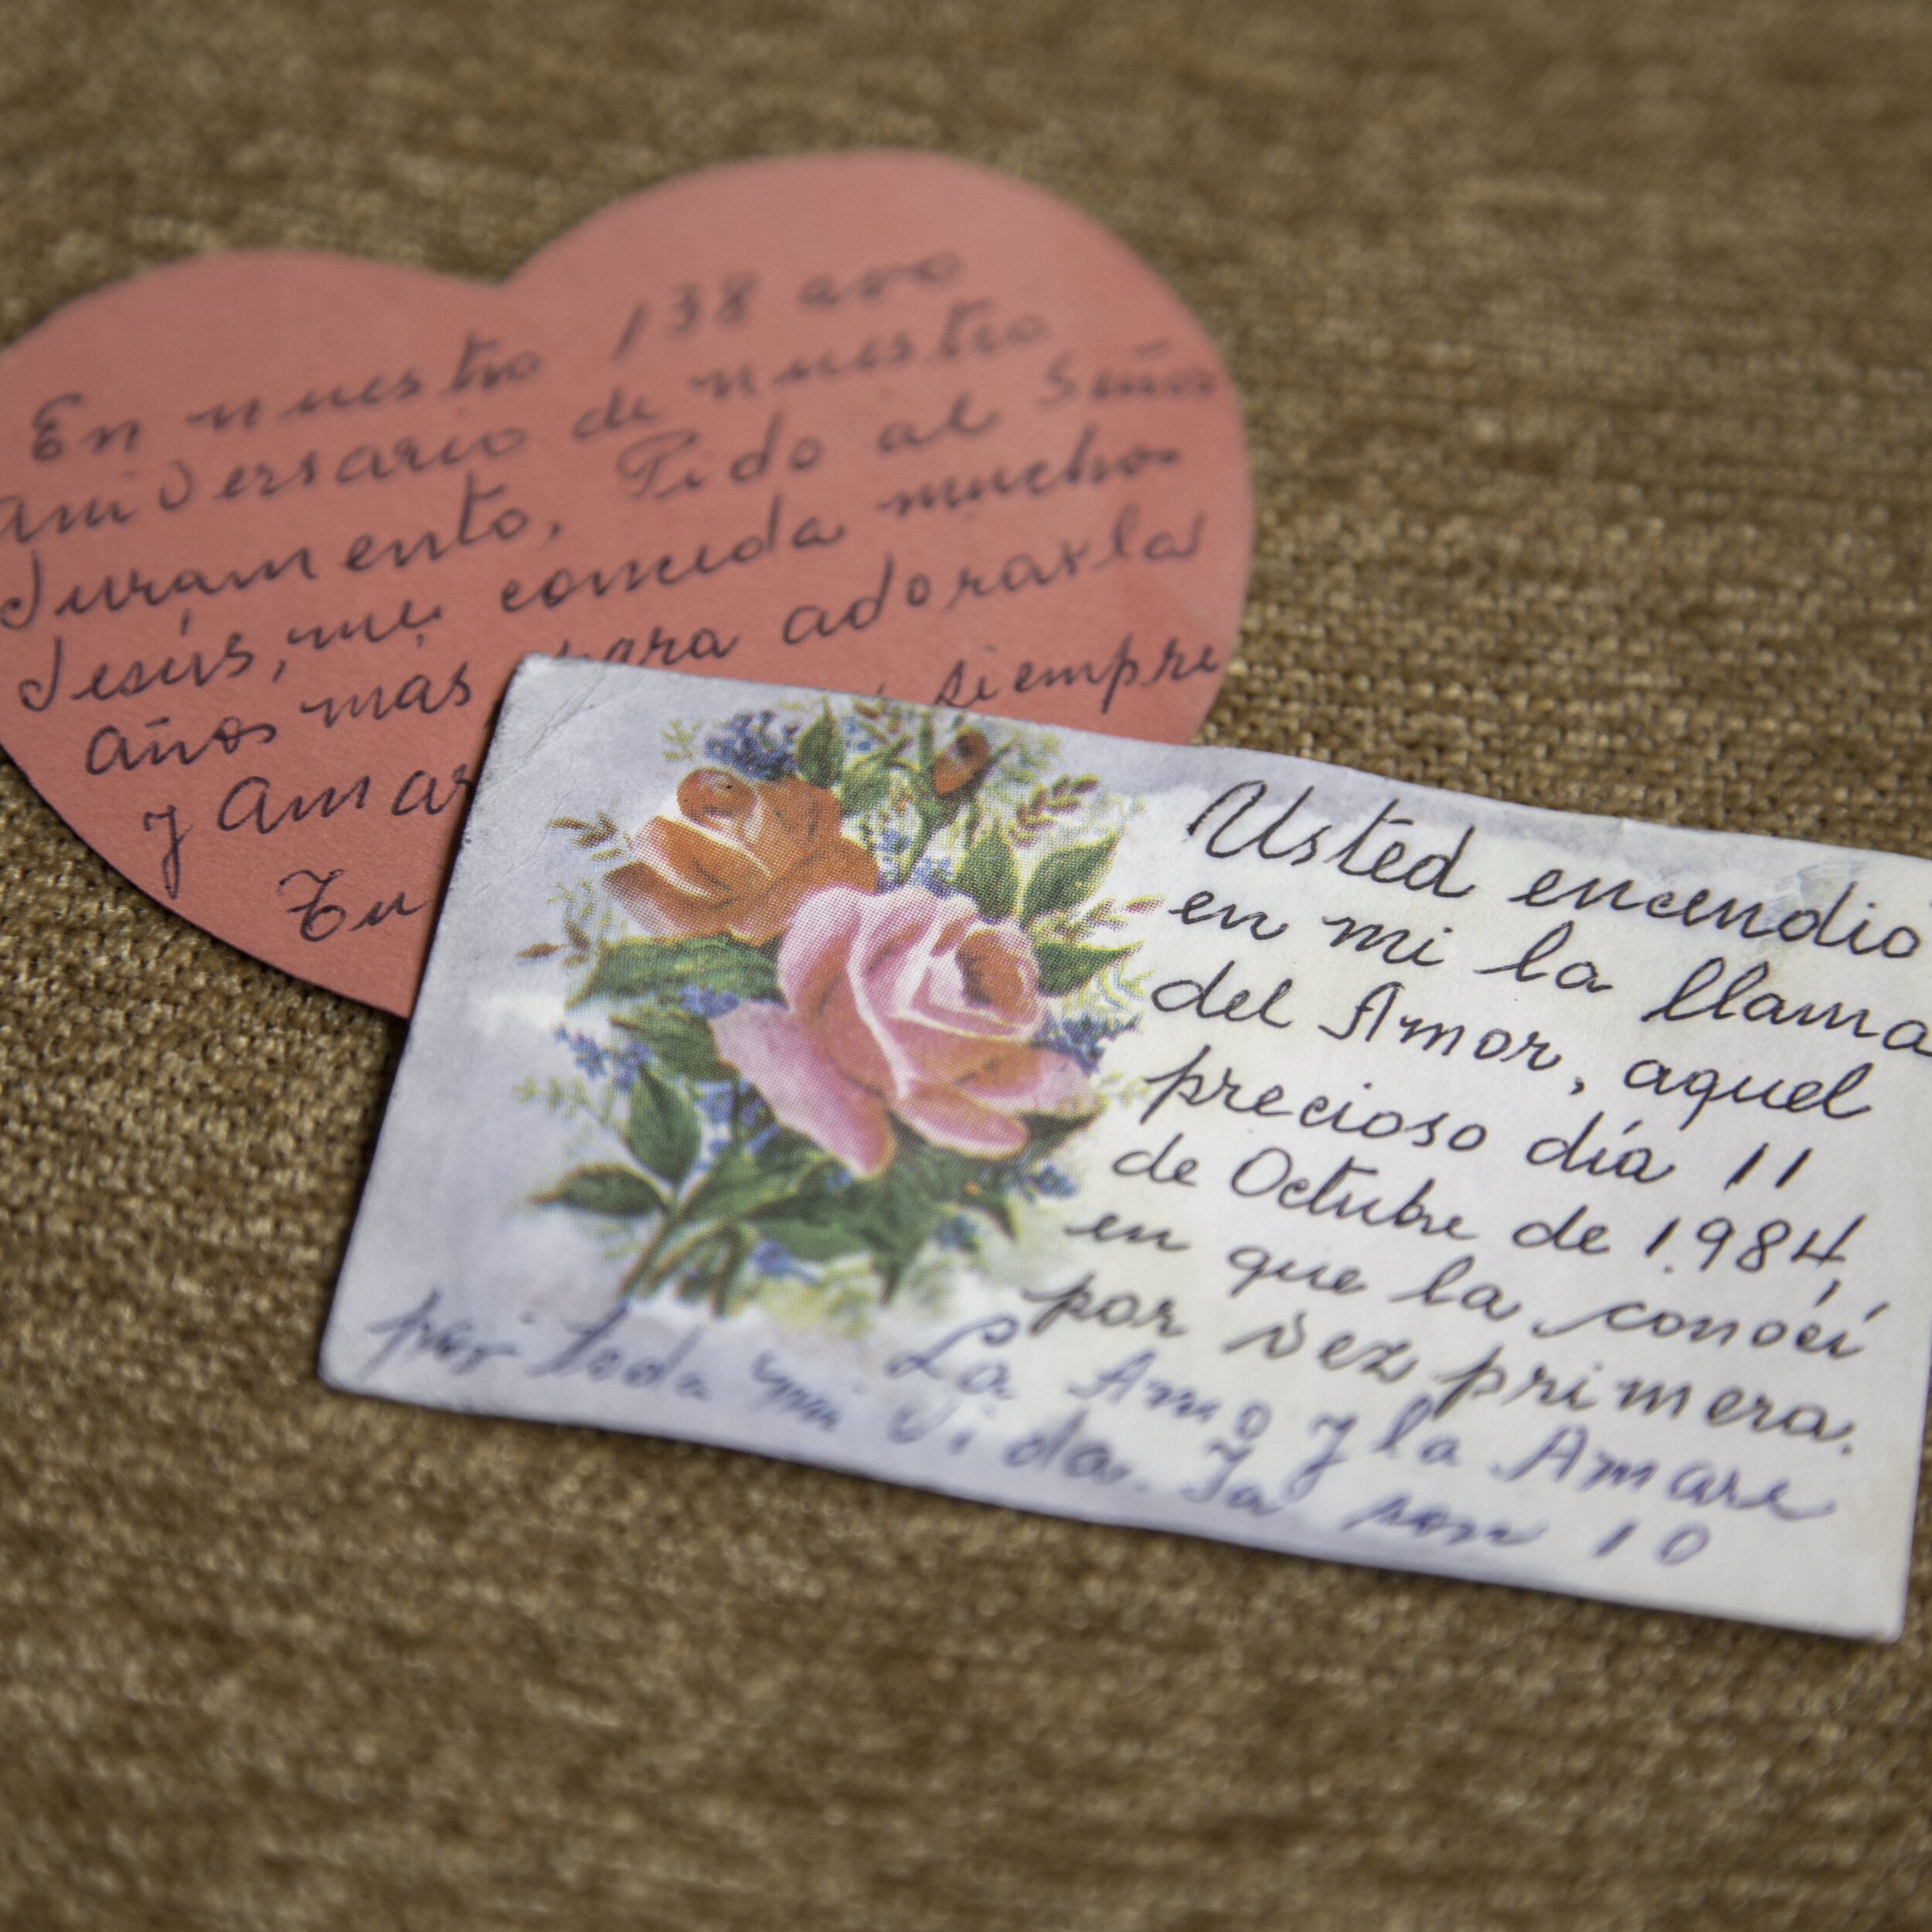 En nuestro 138 avo
aniversario de nuestro
Juramento, Pido al Señor
Jesús, me conceda muchos
años mas para adorarla
y Amar siempre
Tu
Usted encendio
en mi la llama
del Amor, aquel
precioso día 11
de Octubre de 1.984,
en que la conocí
por vez primera.
La Amo y la Amare
por toda mi vida. Ya son 10